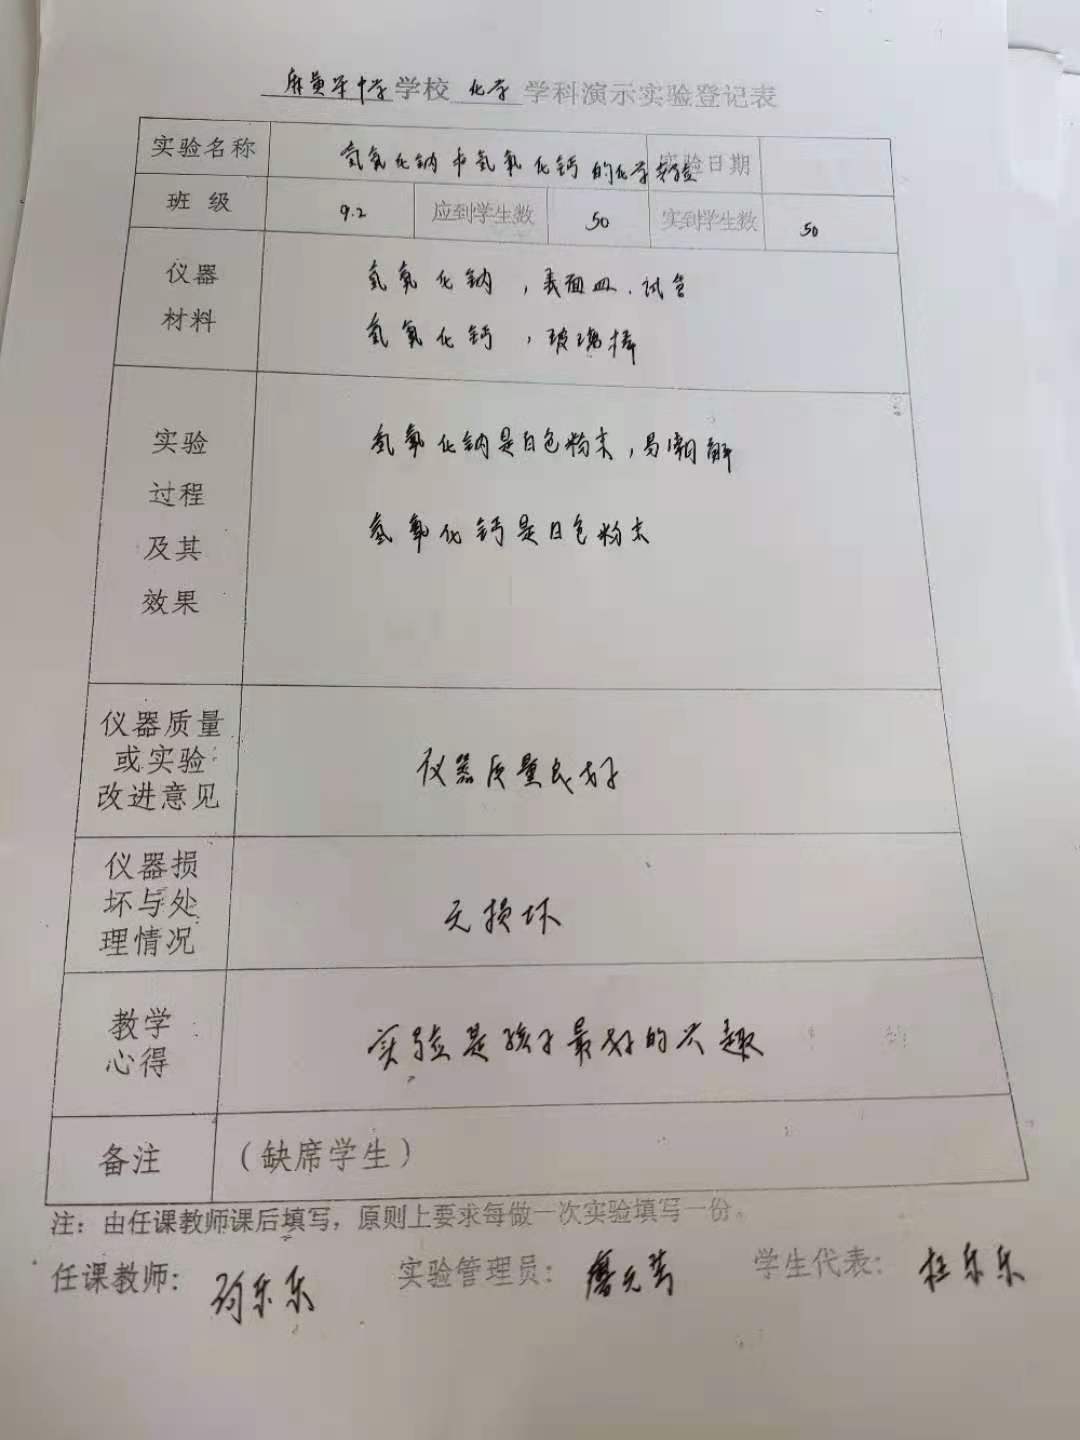 麻黄学中学学校 化学 学科演示实验登记表
实验名称 氢氧化钠和氢氧化钙的化学实验 实验日期
班 级 9.2 应到学生数 50 实到学生数 50
仪器
材料
氢氧化钠，表面皿.试管
氢氧化钙，玻璃棒
实验
过程
及其
效果
氢氧化钠是白色粉末，易潮解
氢氧化钙是白色粉末
仪器质量
或实验
改进意见
仪器质量良好
仪器损
坏与处
理情况
无损坏
教学
心得
实验是孩子最好的兴趣
备注 （缺席学生）
注：由任课教师课后填写，原则上要求每做一次实验填写一份。
任课教师： 乐乐 实验管理员： 廖元 学生代表： 杜乐乐